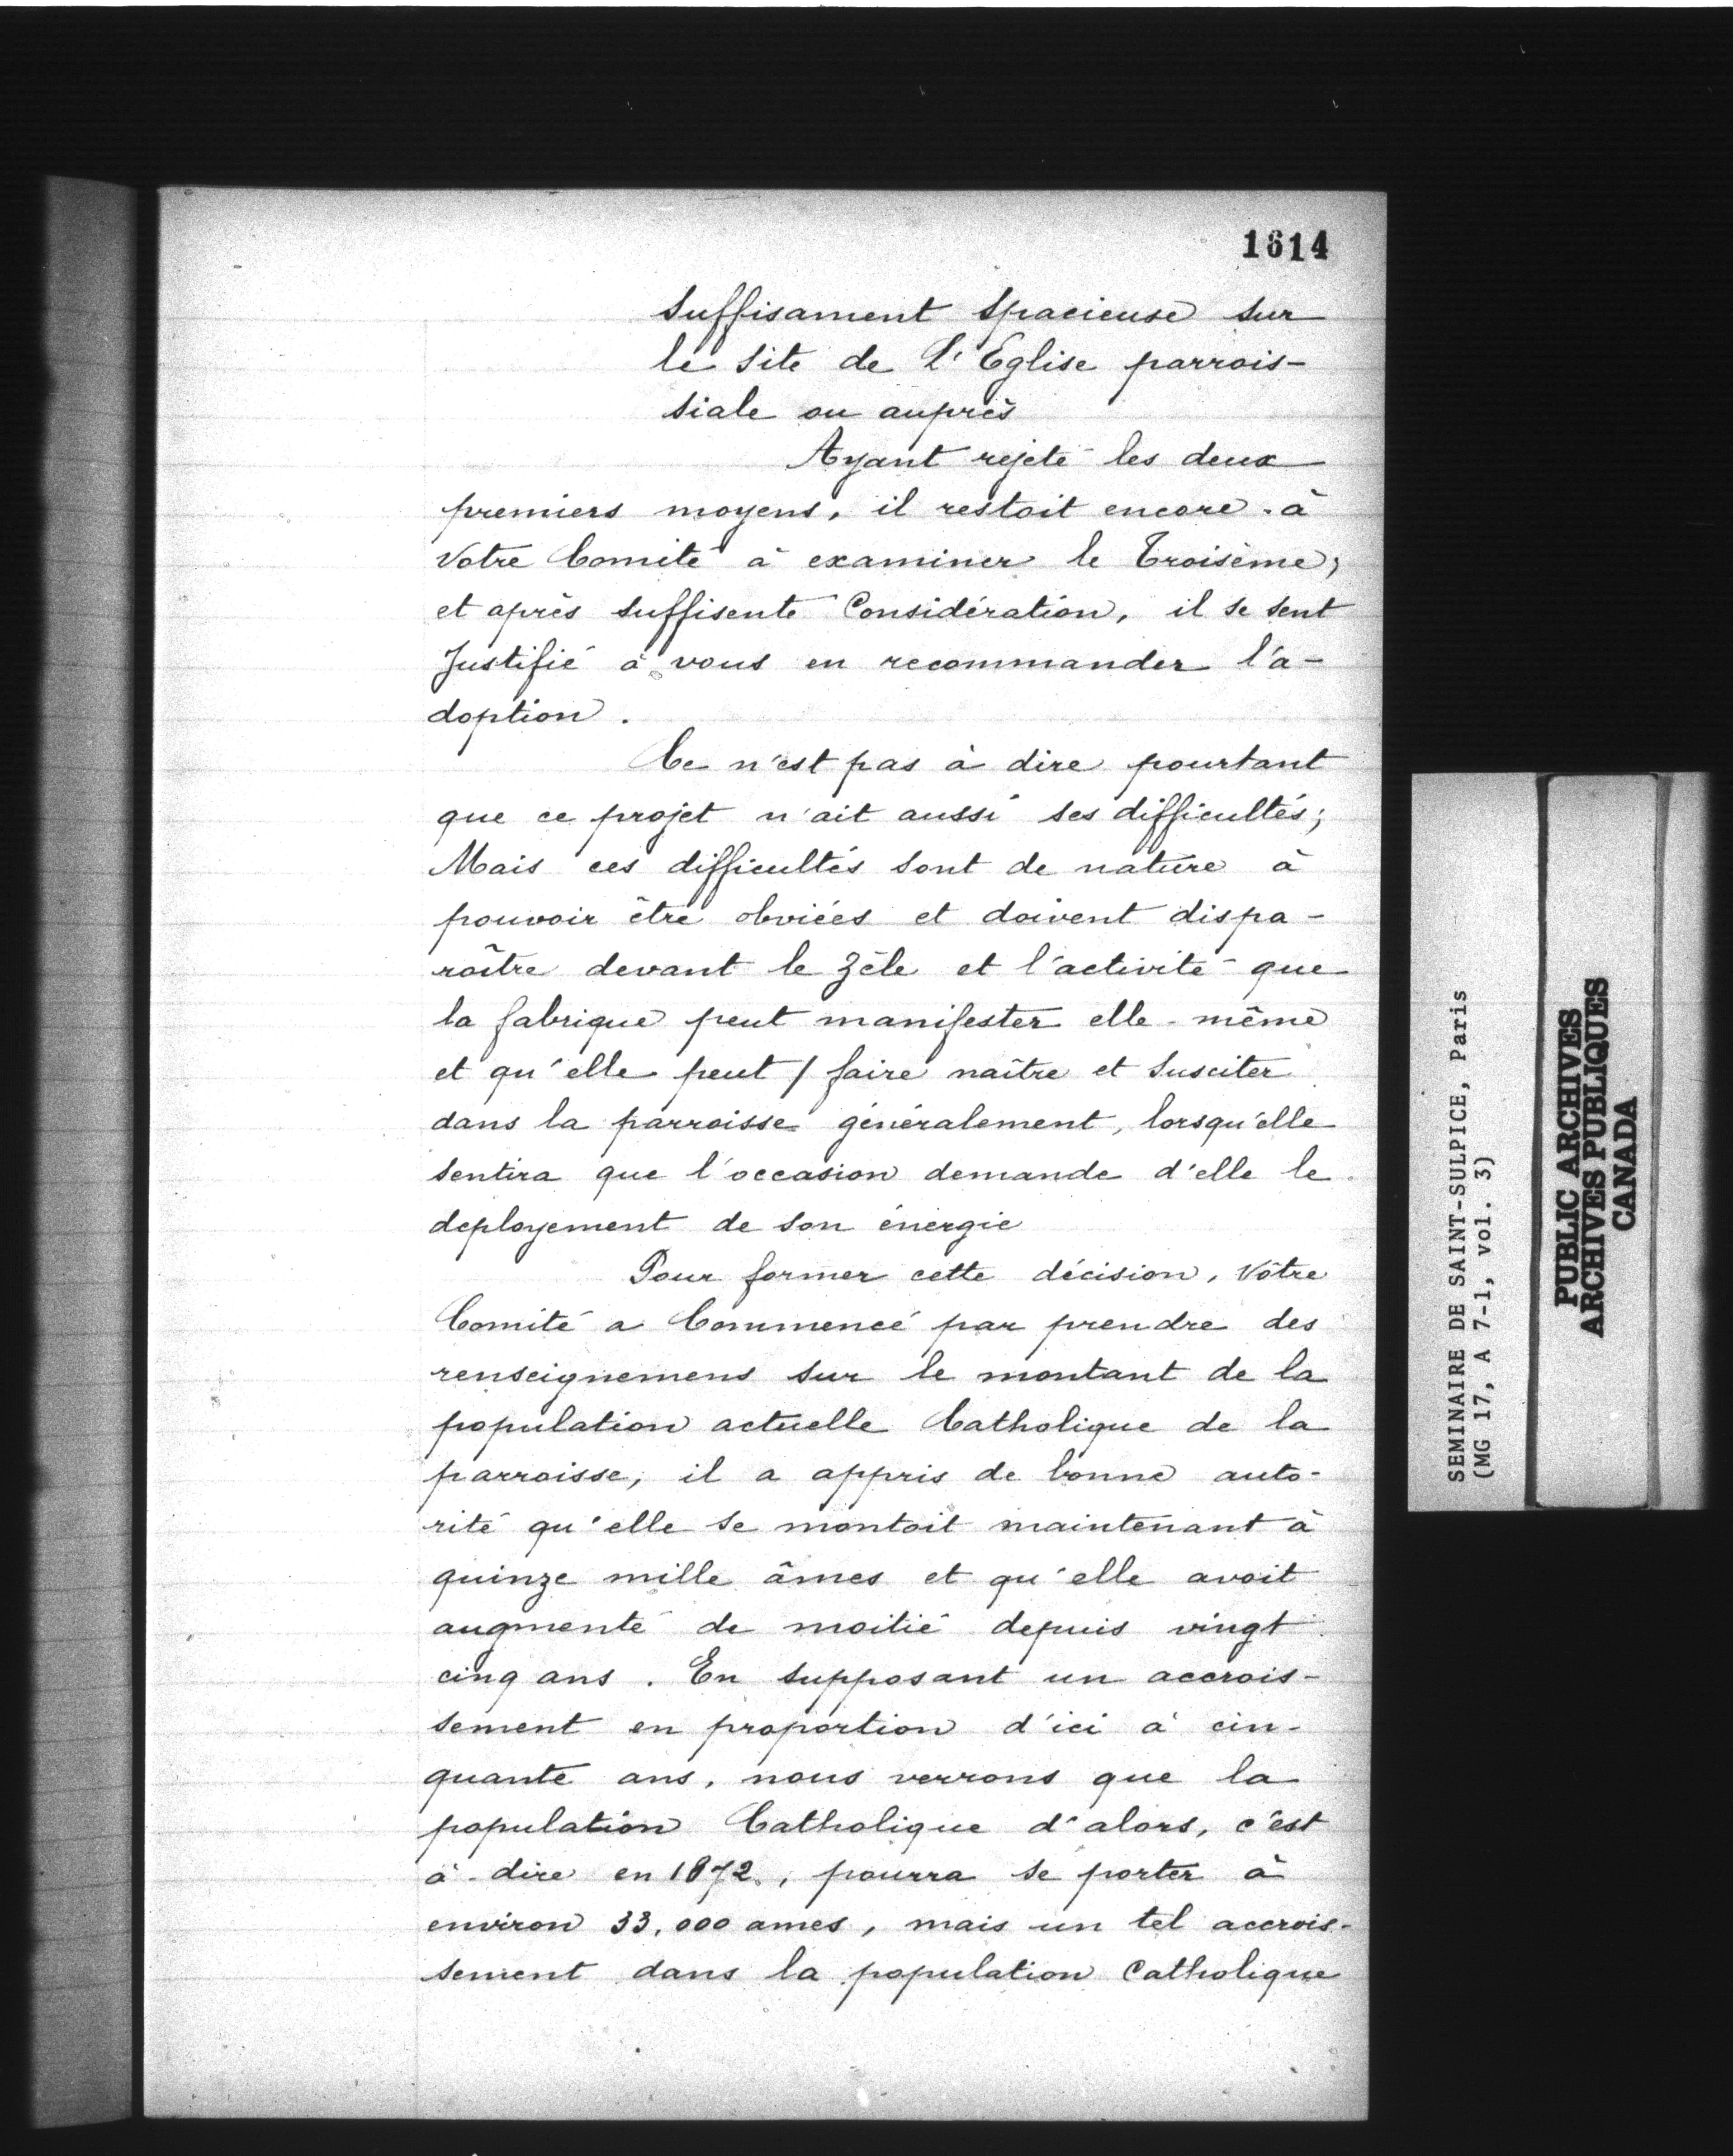 1614
suffisament spacieuse sur
le site de l'Eglise parrois-
siale ou auprès
Ayant rejeté les deux
premiers moyens, il restoit encore à
votre Comité à examiner le Troisème;
et après suffisente Considération, il se sent
Justifié à vous en recommander l'a-
doption.
Ce n'est pas à dire pourtant
que ce projet n'ait aussi ses difficultés;
Mais ces difficultés sont de nature à
pouvoir être obviées et doivent dispa-
roître devant le zèle et l'activité que
la fabrique peut manifester elle-même
et qu'elle peut / faire naître et susciter
dans la parroisse généralement, lorsqu'elle
sentira que l'occasion demande d'elle le
deployement de son énergie
Pour former cette décision, Vôtre
Comité a Commencé par prendre des
renseignemens sur le montant de la
population actuelle Catholique de la
parroisse, il a appris de bonne auto-
rité qu'elle se montoit maintenant à
quinze mille âmes et qu'elle avoit
augmenté de moitié depuis vingt
cinq ans. En supposant un accrois-
sement en proportion d'ici à cin-
quante ans, nous verrons que la
population Catholique d'alors, c'est
à-dire en 1872, pourra se porter à
environ 33,000 ames, mais un tel accrois-
sement dans la population Catholique
SEMINAIRE DE SAINT-SULPICE, Paris
(MG 17, A 7-1, vol. 3)
PUBLIC ARCHIVES
ARCHIVES PUBLIQUES
CANADA